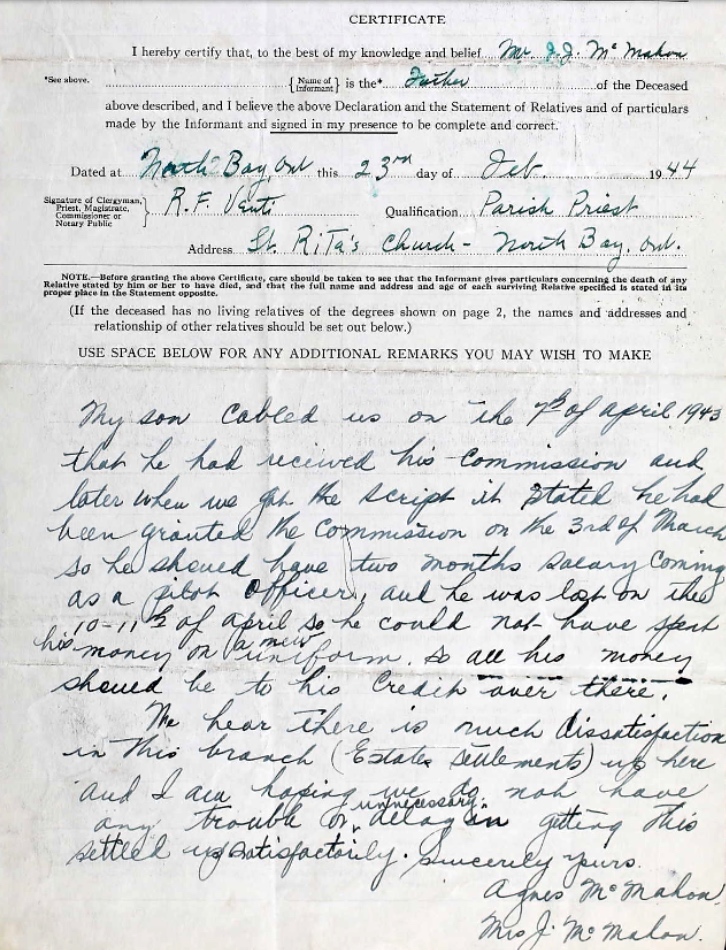 CERTIFICATE
I hereby certify that, to the best of my knowledge and belief Mr. J.J. McMahon
*See above. { Name of Informant } is the* Father of the Deceased
above described, and I believe the above Declaration and the Statement of Relatives and of particulars
made by the Informant and signed in my presence to be complete and correct.
Dated at North Bay, Ont this 23rd day of Feb. 1944
Signature of Clergyman, Priest, Magistrate, Commissioner or Notary Public } R.F. Venti Qualification Parish Priest
Address St. Rita's Church - North Bay, Ont.
NOTE.—Before granting the above Certificate, care should be taken to see that the Informant gives particulars concerning the death of any
Relative stated by him or her to have died, and that the full name and address and age of each surviving Relative specified is stated in its
proper place in the Statement opposite.
(If the deceased has no living relatives of the degrees shown on page 2, the names and addresses and
relationship of other relatives should be set out below.)
USE SPACE BELOW FOR ANY ADDITIONAL REMARKS YOU MAY WISH TO MAKE
My son cabled us on the 7th of April 1943
that he had recieved his Commission and
later when we got the script it stated he had
been granted the Commission on the 3rd of March
so he shoued have two months salary coming
as a pilot officer, and he was lost on the
10-11th of April so he could not have spent
his money on a new uniform. So all his money
shoued be to his Credit over there.
We hear there is much dissatisfaction
in this branch (Estates settlements) up here
and I am hoping we do not have
any trouble or unnecessary delay in getting this
settled up satisfactorily. Sincerely yours.
Agnes McMahon.
Mrs J. McMahon.